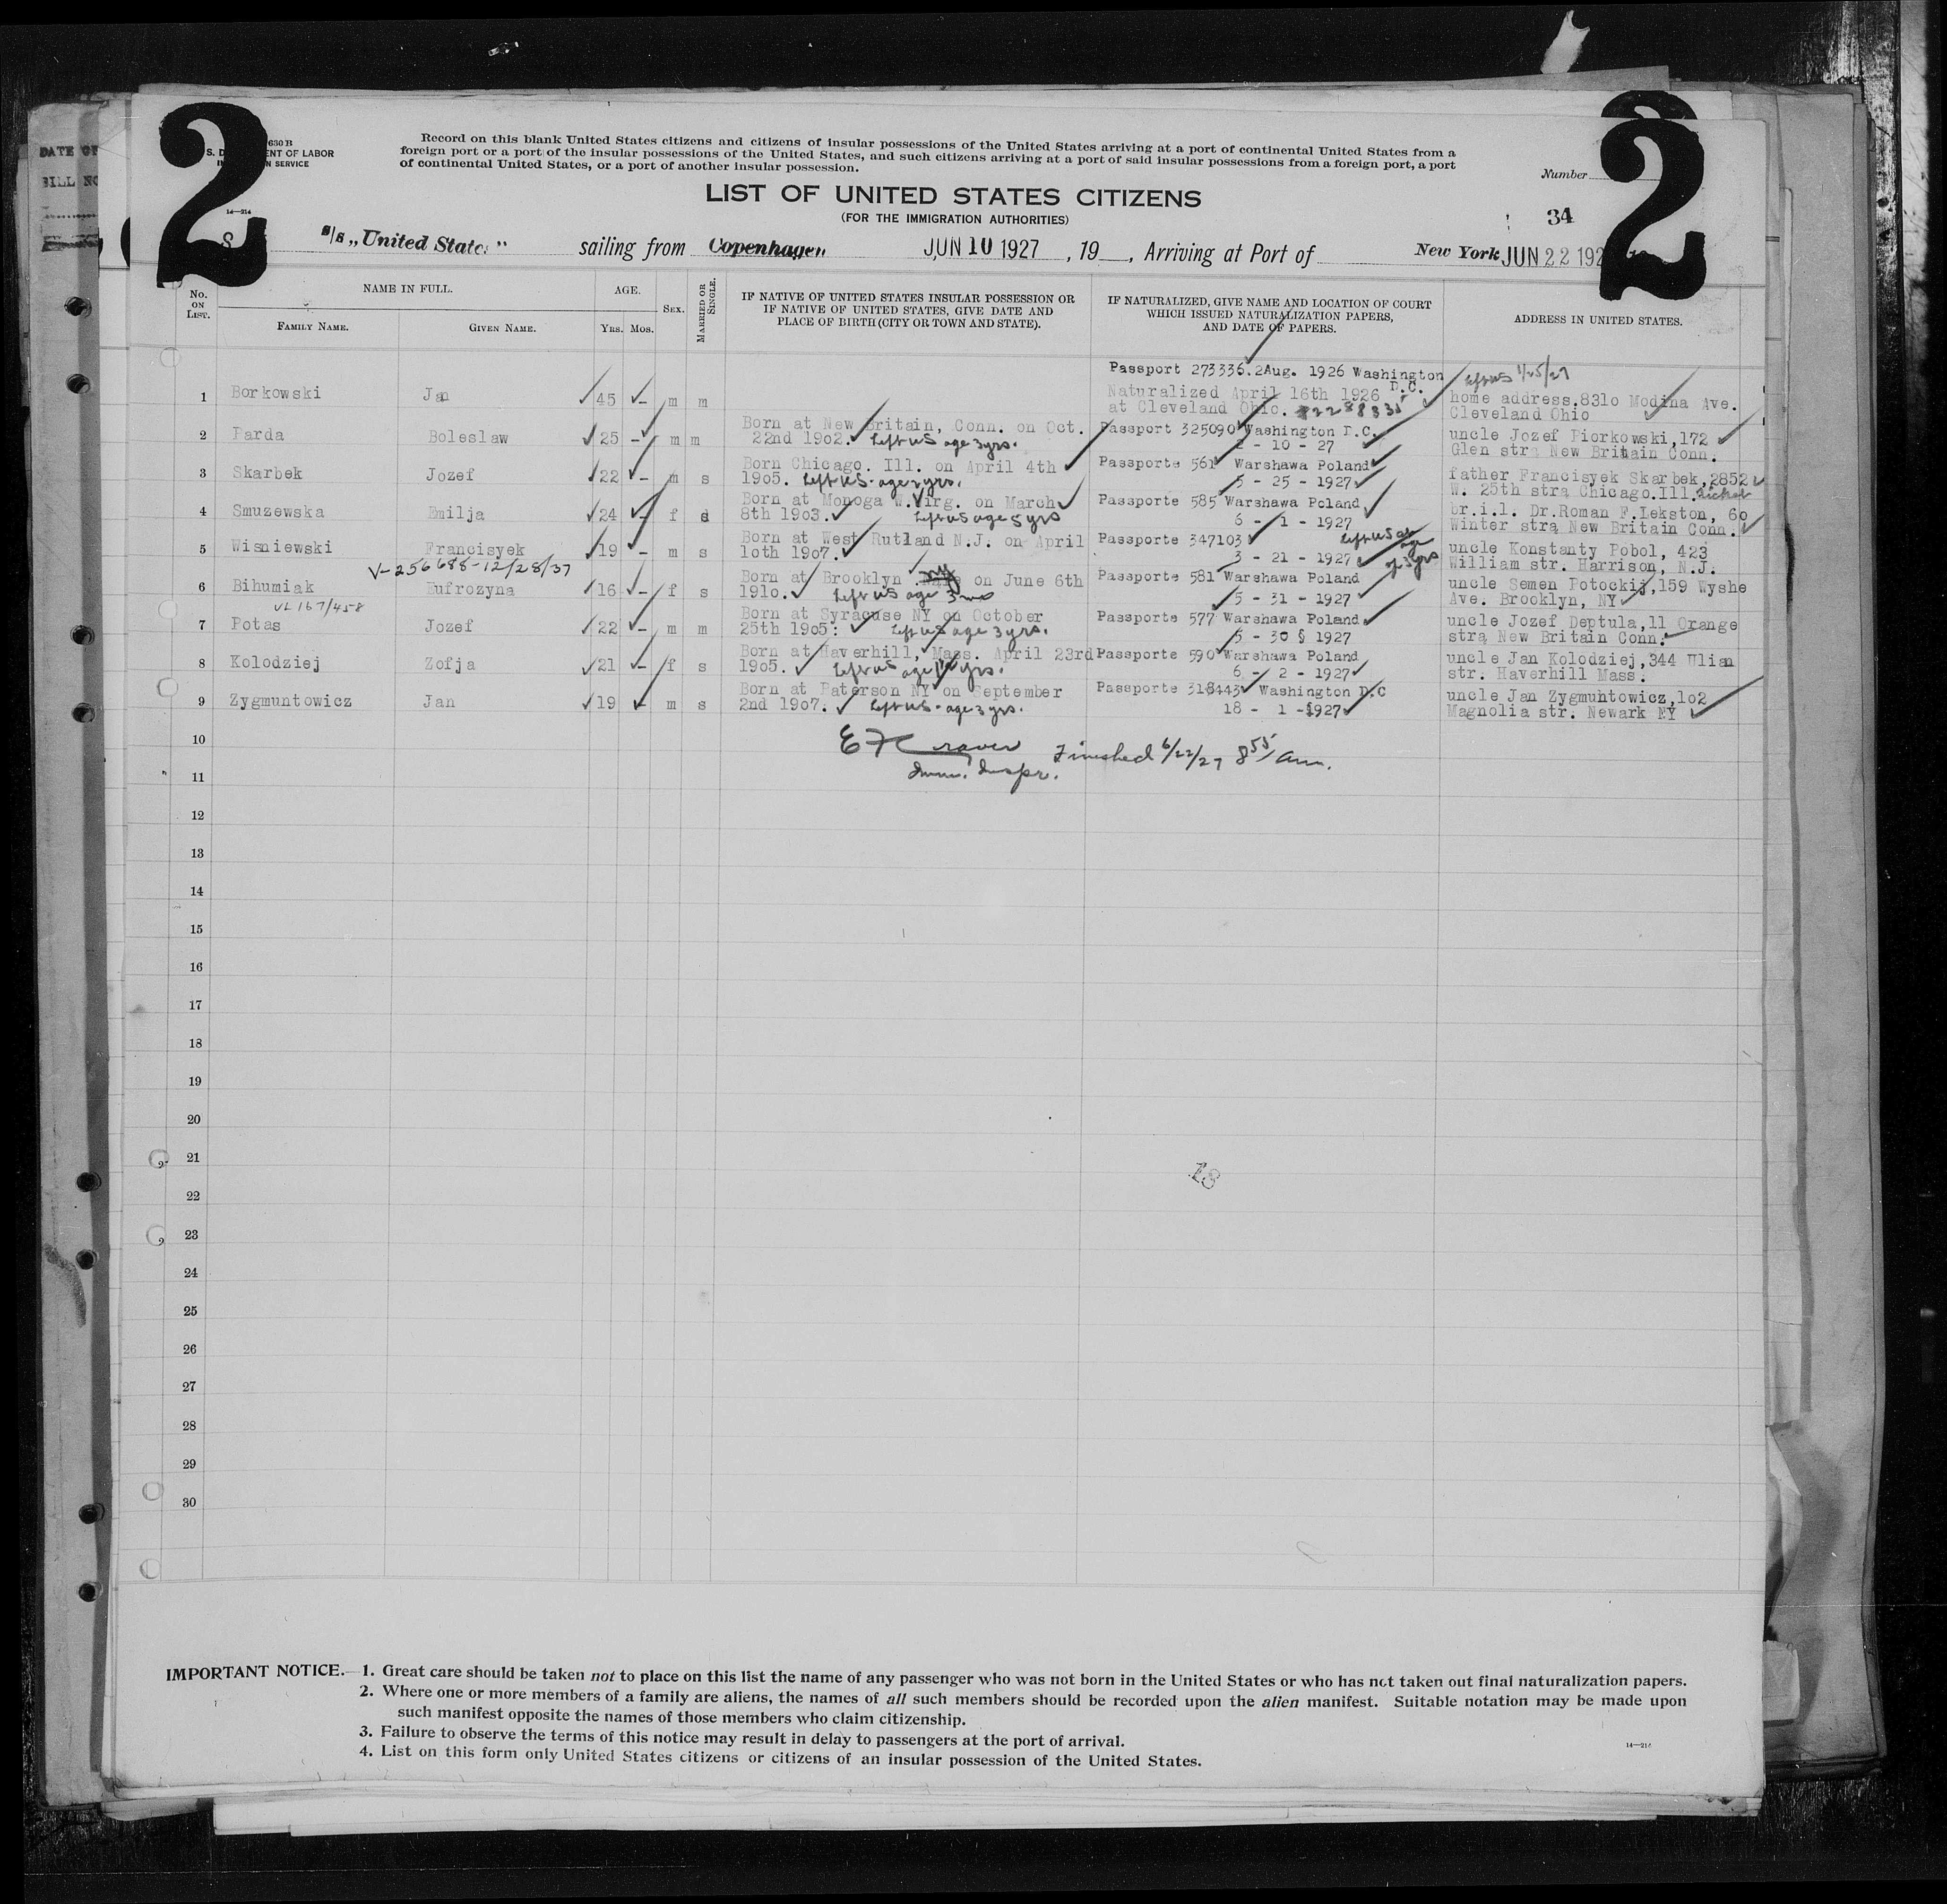 2
2
DATE OF
BILL NO
630 B
S. D ENT OF LABOR
IN N SERVICE
14—214
Record on this blank United States citizens and citizens of insular possessions of the United States arriving at a port of continental United States from a
foreign port or a port of the insular possessions of the United States, and such citizens arriving at a port of said insular possessions from a foreign port, a port
of continental United States, or a port of another insular possession.
Number
LIST OF UNITED STATES CITIZENS
(FOR THE IMMIGRATION AUTHORITIES)
34
S s/s „United States" sailing from Copenhagen JUN 10 1927, 19 , Arriving at Port of New York JUN 22 192
No. ON LIST. NAME IN FULL. FAMILY NAME. GIVEN NAME. AGE. YRS. MOS. SEX. MARRIED OR SINGLE.
IF NATIVE OF UNITED STATES INSULAR POSSESSION OR
IF NATIVE OF UNITED STATES, GIVE DATE AND
PLACE OF BIRTH (CITY OR TOWN AND STATE).
IF NATURALIZED, GIVE NAME AND LOCATION OF COURT
WHICH ISSUED NATURALIZATION PAPERS,
AND DATE OF PAPERS.
ADDRESS IN UNITED STATES.
Passport 273336.2Aug. 1926 Washington D.C. Left US 1/25/27
1 Borkowski Jan 45 - m m Naturalized April 16th 1926 home address.831o Modina Ave.
at Cleveland Ohio. Cleveland Ohio
2 Parda Boleslaw 25 - m m Born at New Britain, Conn. on Oct. Passport 325090 Washington D.C. uncle Jozef Piorkowski,172
22nd 19o2. Left US age 3yrs. 2 - 10 - 27 Glen stra New Britain Conn.
3 Skarbek Jozef 22 - m s Born Chicago. Ill. on April 4th Passporte 561 Warshawa Poland father Francisyek Skarbek,2852
19o5. Left US. age 2yrs. 5 - 25 - 1927 W. 25th stra Chicago.Ill.
4 Smuzewska Emilja 24 - f d Born at Monoga W.Virg. on March Passporte 585 Warshawa Poland br.i.l. Dr.Roman F.Iekston, 6o
8th 19o3. Left US age 5 yrs 6 - 1 - 1927 Winter stra New Britain Conn.
5 Wisniewski Francisyek 19 - m s Born at West Rutland N.J. on April Passporte 347103 Left US at age of 3 yrs uncle Konstanty Pobol, 423
1oth 19o7. 3 - 21 - 1927 William str. Harrison, N.J.
V-256688-12/28/37
6 Bihumiak Eufrozyna 16 - f s Born at Brooklyn NY on June 6th Passporte 581 Warshawa Poland uncle Semen Potockij,159 Wyshe
191o. Left US age 3 mo 5 - 31 - 1927 Ave. Brooklyn, NY
VL 167/458
7 Potas Jozef 22 - m m Born at Syracuse NY on October Passporte 577 Warshawa Poland uncle Jozef Deptula,11 Orange
25th 19o5: Left US age 3 yrs. 5 - 30 § 1927 stra New Britain Conn.
8 Kolodziej Zofja 21 - f s Born at Haverhill, Mass. April 23rd Passporte 590 Warshawa Poland uncle Jan Kolodziej,344 Wlian
19o5. Left US age yrs. 6 - 2 - 1927 str. Haverhill Mass.
9 Zygmuntowicz Jan 19 - m s Born at Paterson NY on September Passporte 318443 Washington D.C uncle Jan Zygmuntowicz,1o2
2nd 19o7. Left US. age 3 yrs. 18 - 1 - 1927 Magnolia str. Newark NY
10 Finished 6/22/27 8 55 am.
Imm. Inspr.
11
12
13
14
15
16
17
18
19
20
21
22
23
24
25
26
27
28
29
30
13
IMPORTANT NOTICE.—1. Great care should be taken not to place on this list the name of any passenger who was not born in the United States or who has not taken out final naturalization papers.
2. Where one or more members of a family are aliens, the names of all such members should be recorded upon the alien manifest. Suitable notation may be made upon
such manifest opposite the names of those members who claim citizenship.
3. Failure to observe the terms of this notice may result in delay to passengers at the port of arrival.
4. List on this form only United States citizens or citizens of an insular possession of the United States.
14—214